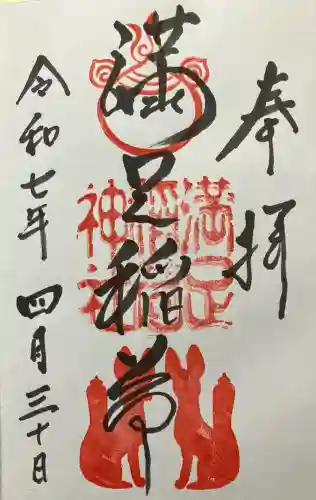 奉拝
満足稲荷
満足稲荷神社
令和七年四月三十日